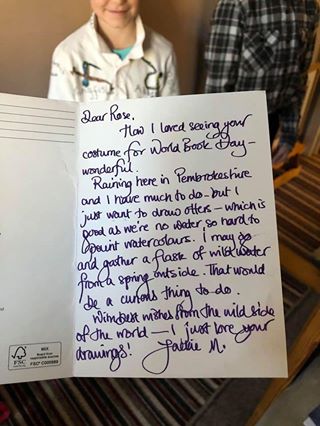 Dear Rose,
How I loved seeing your
costume for World Book Day –
wonderful.
Raining here in Pembrokeshire
and I have much to do – but I
just want to draw otters – which is
good as we're no water so hard to
paint watercolours. I may go
and gather a flask of wild water
from a spring outside. That would
be a curious thing to do.
With best wishes from the wild side
of the world — I just love your
drawings! Jackie M.
FSC
MIX
Board from
responsible sources
FSC® C000989